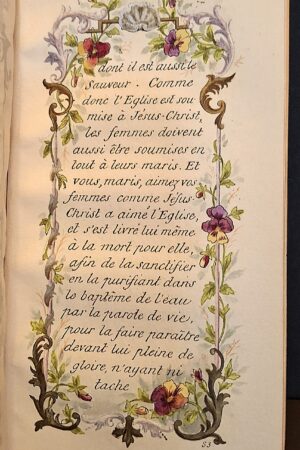 dont il est aussi le
Sauveur. Comme
donc l'Eglise est sou-
mise à Jésus-Christ,
les femmes doivent
aussi être soumises en
tout à leurs maris. Et
vous, maris, aimez vos
femmes comme Jésus-
Christ a aimé l'Eglise,
et s'est livré lui même
à la mort pour elle,
afin de la sanctifier
en la purifiant dans
le baptême de l'eau
par la parole de vie,
pour la faire paraître
devant lui pleine de
gloire, n'ayant ni
tache
53